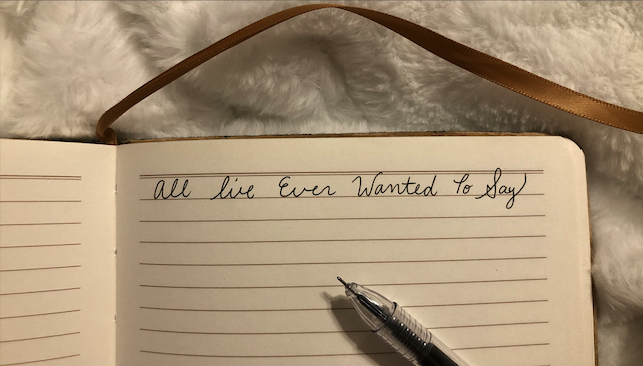 All I've Ever Wanted To Say